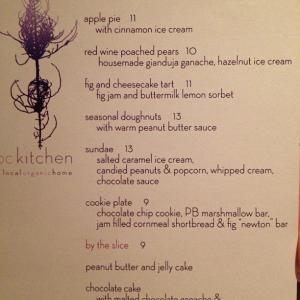 apple pie 11
with cinnamon ice cream
red wine poached pears 10
housemade gianduja ganache, hazelnut ice cream
fig and cheesecake tart 11
fig jam and buttermilk lemon sorbet
seasonal doughnuts 13
with warm peanut butter sauce
kitchen
localorganichome
sundae 13
salted caramel ice cream,
candied peanuts & popcorn, whipped cream,
chocolate sauce
cookie plate 9
chocolate chip cookie, PB marshmallow bar,
jam filled cornmeal shortbread & fig "newton" bar
by the slice 9
peanut butter and jelly cake
chocolate cake
with malted chocolate ganache &